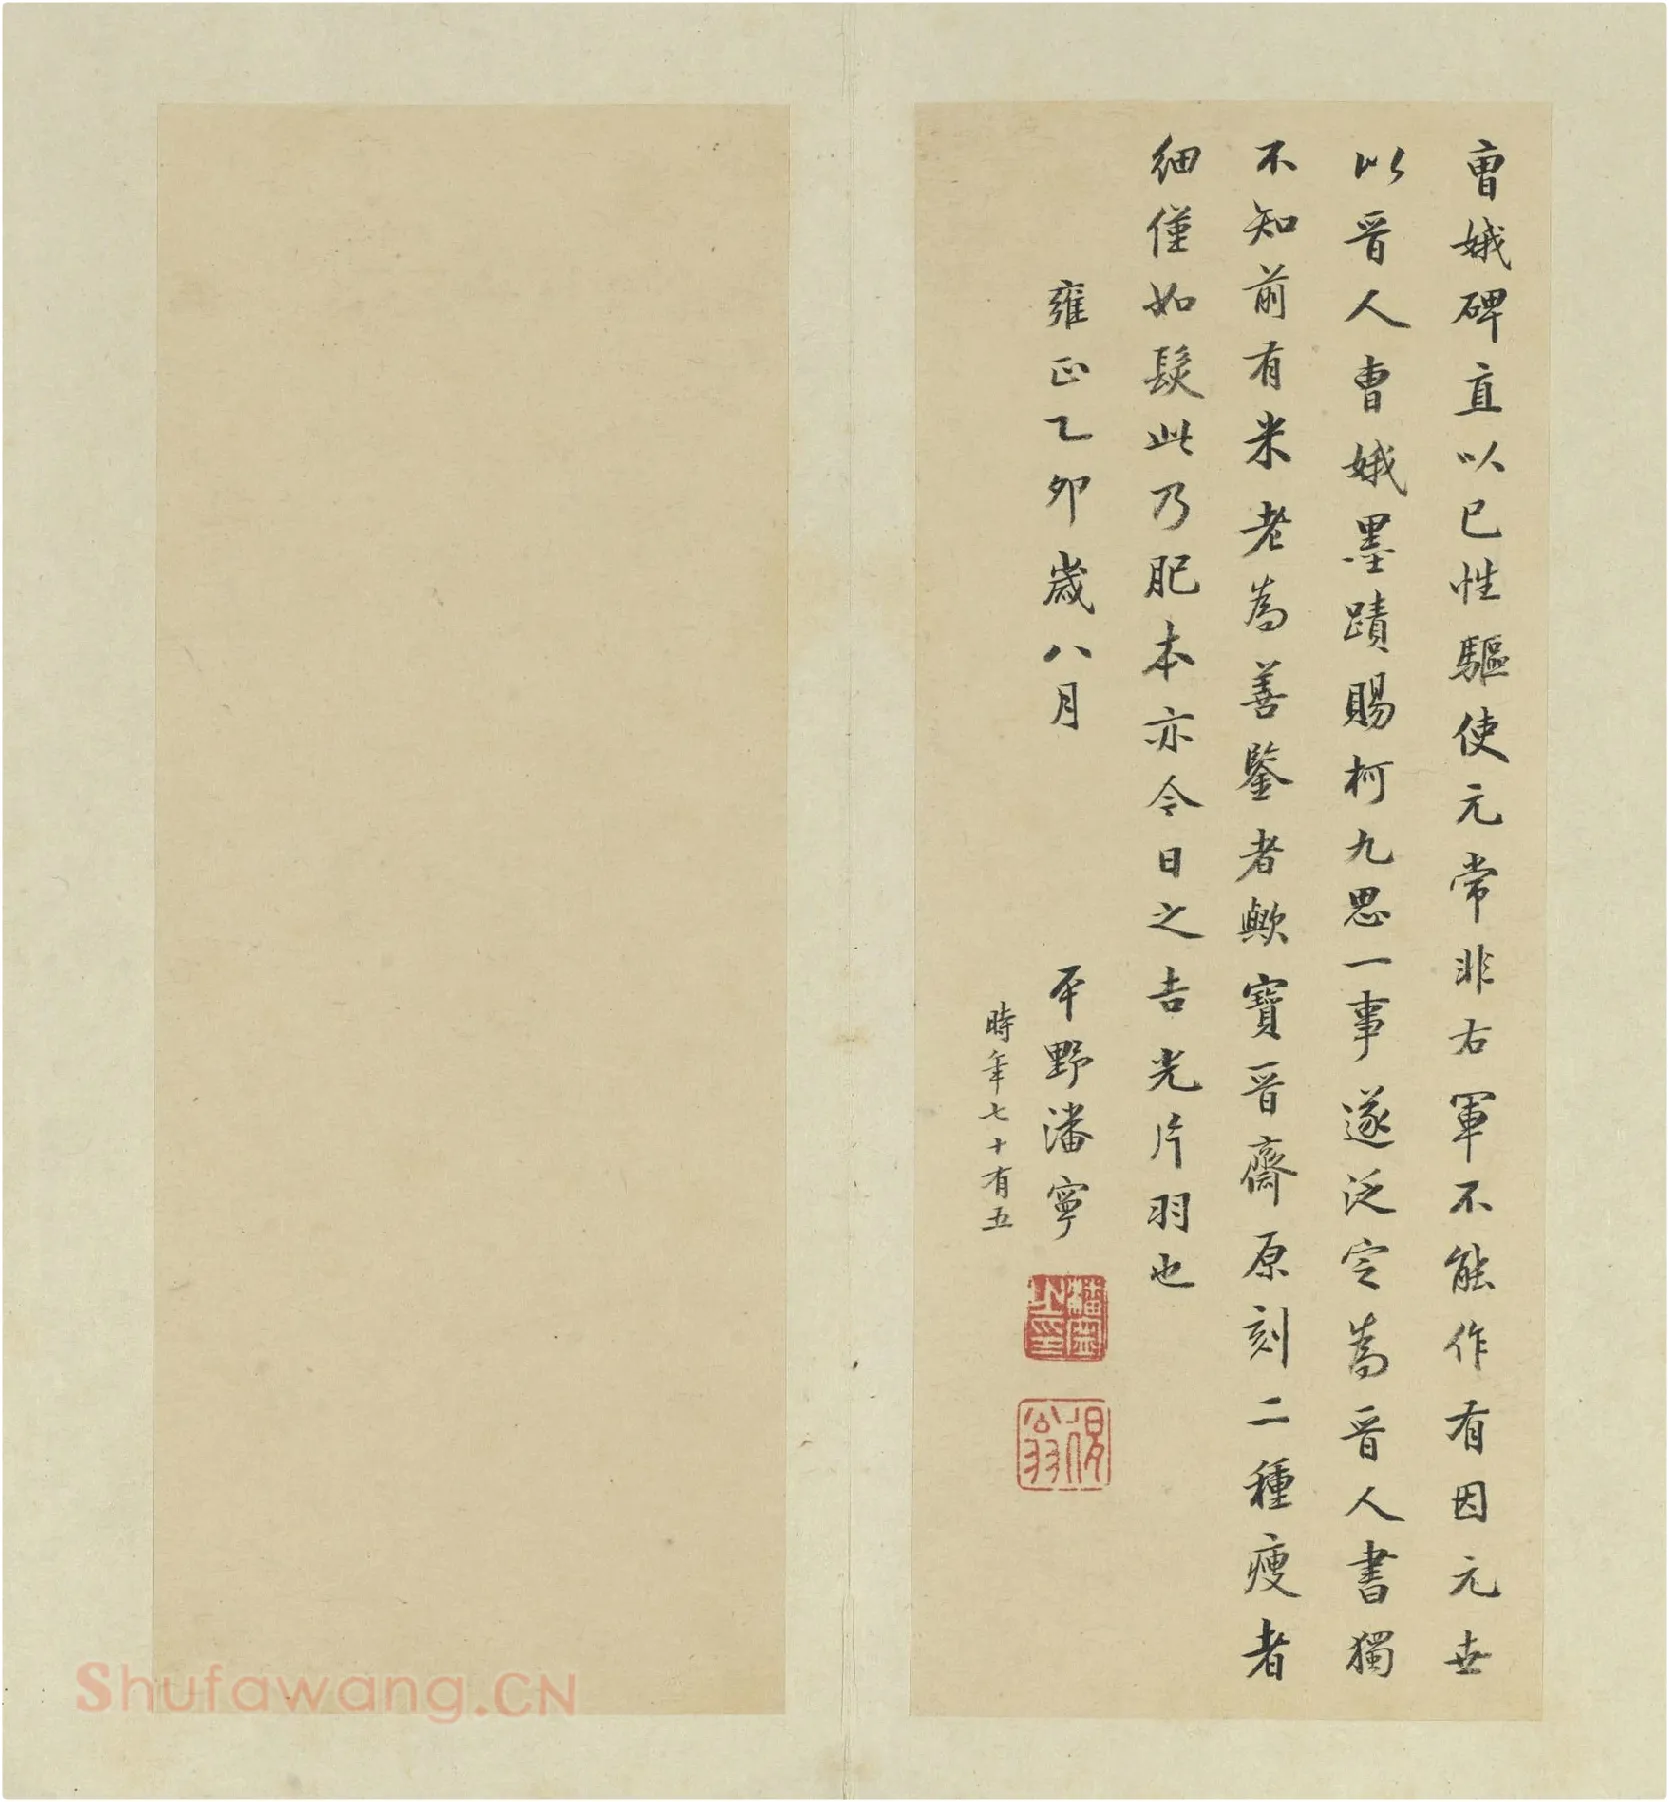 曹娥碑直以己性驅使元常非右軍不能作有因元世
以晉人曹娥墨蹟賜柯九思一事遂泛定為晉人書獨
不知前有米老為善鑒者歟寶晉齋原刻二種瘦者
細僅如髮此乃肥本亦今日之吉光片羽也
雍正乙卯歲八月
平野潘寧
時年七十有五
潘寧之印
Shufawang.CN